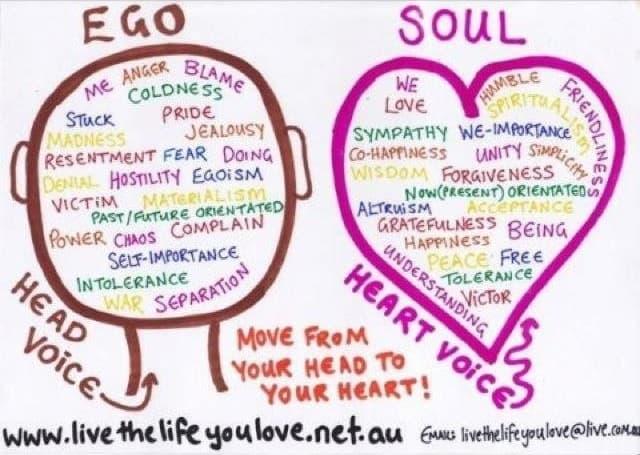 EGO
ME ANGER BLAME
COLDNESS
STUCK PRIDE
MADNESS JEALOUSY
RESENTMENT FEAR DOING
DENIAL HOSTILITY EGOISM
VICTIM MATERIALISM
PAST/FUTURE ORIENTATED
POWER CHAOS COMPLAIN
SELF-IMPORTANCE
INTOLERANCE
WAR SEPARATION
HEAD
VOICE
SOUL
WE HUMBLE FRIENDLINESS
LOVE SPIRITUALISM
SYMPATHY WE-IMPORTANCE
CO-HAPPINESS UNITY SIMPLICITY
WISDOM FORGIVENESS
NOW(PRESENT) ORIENTATED
ALTRUISM ACCEPTANCE
GRATEFULNESS BEING
HAPPINESS
PEACE FREE
UNDERSTANDING TOLERANCE
VICTOR
HEART VOICE
MOVE FROM
YOUR HEAD TO
YOUR HEART!
www.livethelifeyoulove.net.au EMAIL: livethelifeyoulove@live.com.au